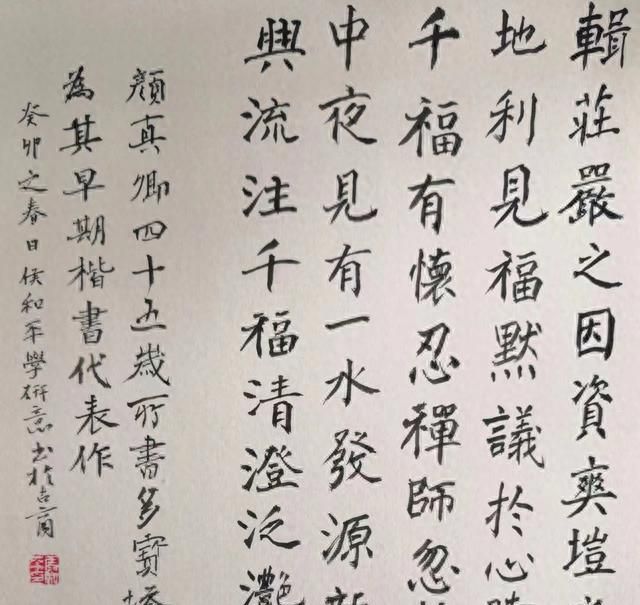 輯莊嚴之因資爽塏
地利見福默議於心
千福有懷忍禪師忽
中夜見有一水發源
興流注千福清澄泛灔
顏真卿四十五歲所書多寶塔
為其早期楷書代表作
癸卯之春日侯和平學研意書於古商